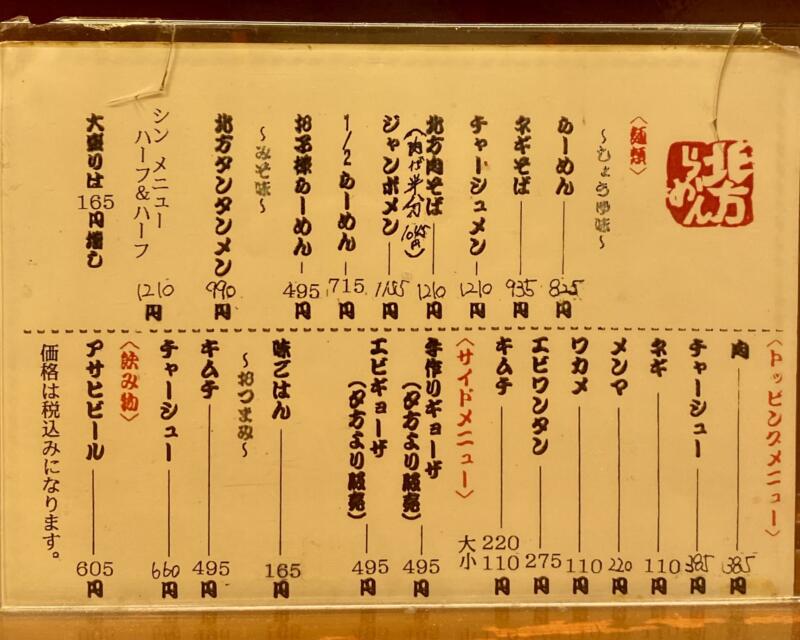 北方
らーめん
〈麺類〉
〜しょうゆ味〜
らーめん 825円
ネギそば 935円
チャーシュメン 1210円
北方肉そば 1210円
(肉そば半分 1045円)
ジャンボメン 1155円
1/2らーめん 715円
お子様らーめん 495円
〜みそ味〜
北方タンタンメン 990円
シン メニュー
ハーフ&ハーフ 1210円
大盛りは165円増し
〈トッピングメニュー〉
肉 385円
チャーシュー 385円
ネギ 110円
メンマ 220円
ワカメ 110円
エビワンタン 275円
キムチ 大220 小110円
〈サイドメニュー〉
手作りギョーザ 495円
(夕方より販売)
エビギョーザ 495円
(夕方より販売)
味ごはん 165円
〜おつまみ〜
キムチ 495円
チャーシュー 660円
〈飲み物〉
アサヒビール 605円
価格は税込みになります。